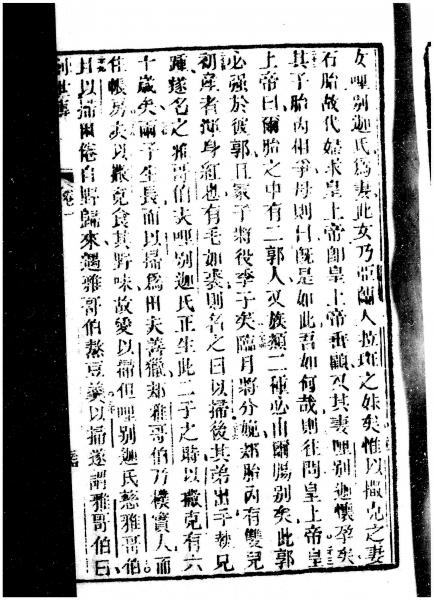 女哩別迦氏爲妻此女乃亞蘭人拉班之妹矣惟以撒克之妻
石胎故代婦求皇上帝卽皇上帝垂顧乃其妻哩別迦懷孕矣
其子胎內相爭母則曰旣是如此吾如何哉則往問皇上帝皇
上帝曰爾胎之中有二郭人又族類二種必由爾腸別矣此郭
必强於彼郭且冢子將役季子矣臨月將分娩郟胎內有雙兒
初産者渾身紅也有毛如裘則名之曰以掃後其弟出手執兄
踵遂名之雅哥伯夫哩別迦氏正生此二子之時以撒克有六
十歲矣爾子生長而以掃爲田夫善獵郟雅哥伯乃樸實人而
住帳房夫以撒克食其野味故愛以掃但哩別迦氏慈雅哥伯
且以掃困倦自野歸來遇雅哥伯熬豆羹以掃遂謂雅哥伯曰
創世傳